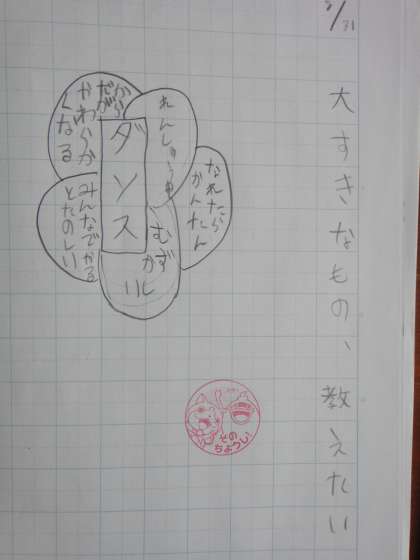 大すきなもの、教えたい
ダンス
れんしゅう
なれたら
かんたん
むず
かし
い
からだが
やわらか
くなる
みんなでやる
とたのしい
その
ちょうし!